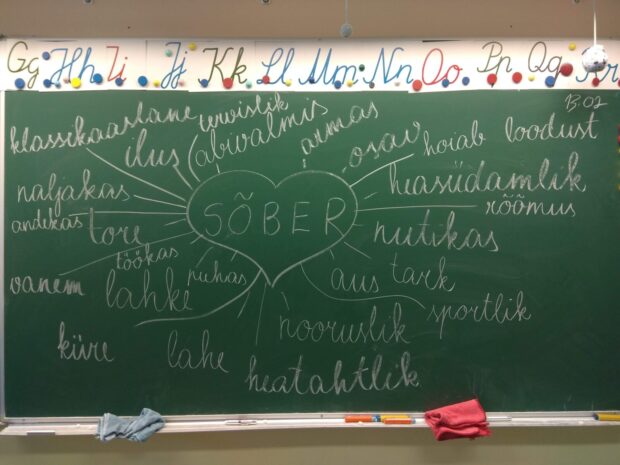 Gg Hh Ii Jj Kk Ll Mm Nn Oo Pp Qq Rr
13.02
klassikaaslane
ilus
tervislik
abivalmis
armas
osav
hoiab loodust
naljakas
heasüdamlik
andekas
SÕBER
rõõmus
tore
nutikas
töökas
vanem
lahke
puhas
aus
tark
sportlik
nooruslik
kiire
lahe
heatahtlik